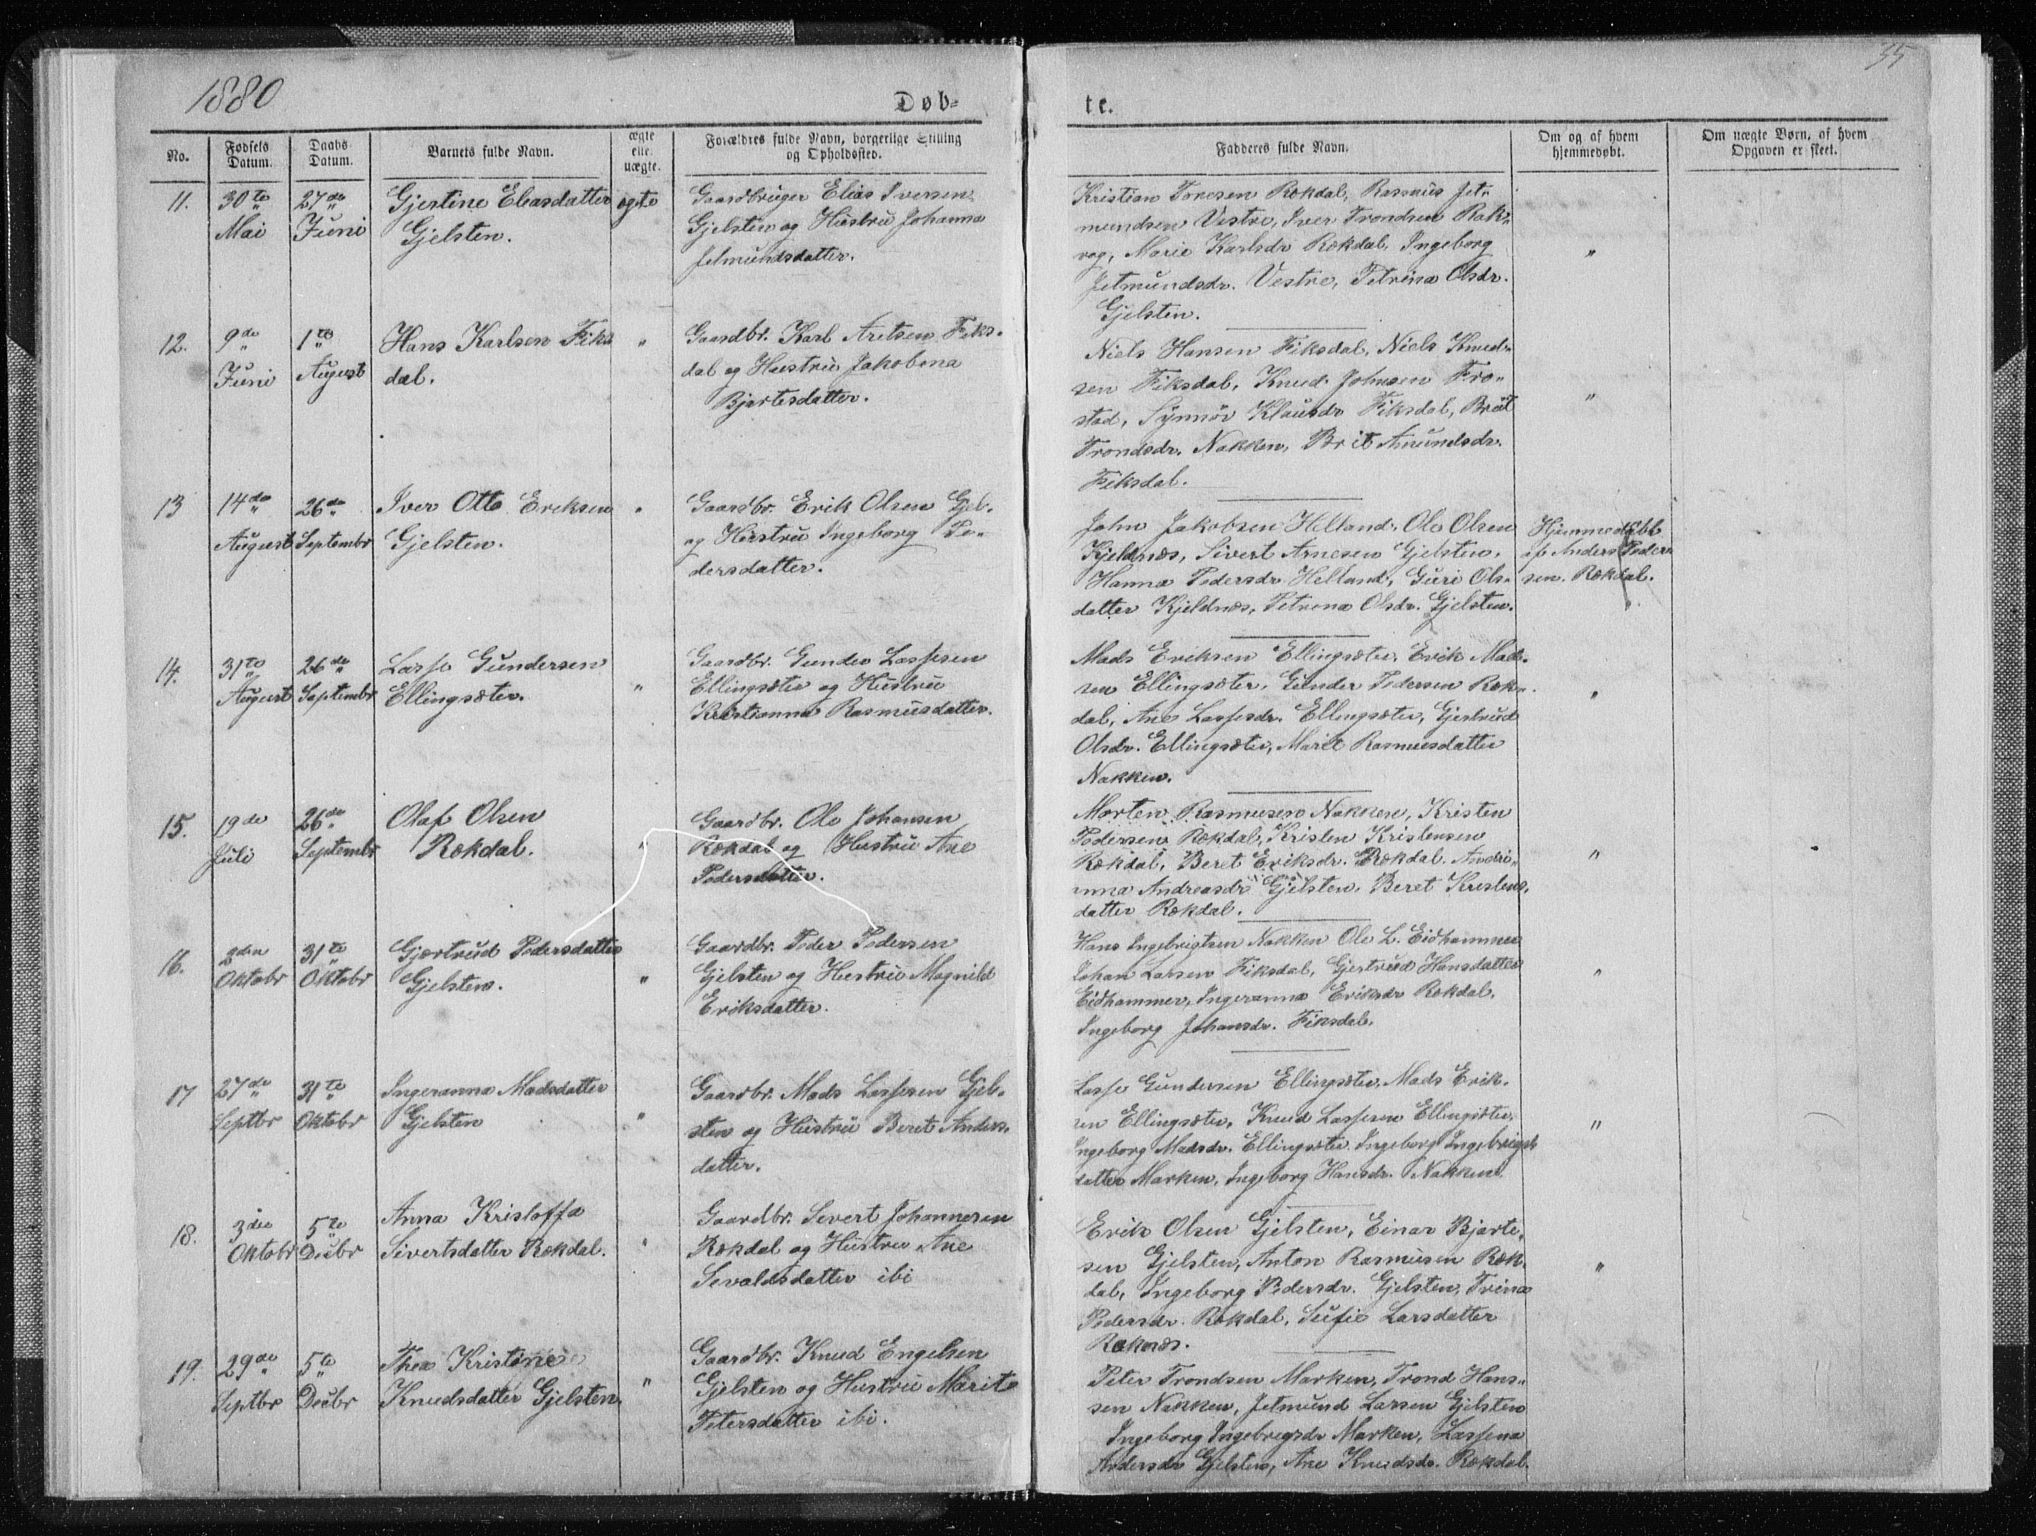 1880
35
Døb-
te.
No.
Fødsels Datum.
Daabs Datum.
Barnets fulde Navn.
ægte elle. uægte.
Forældres fulde Navn, borgerlige Stilling og Opholdssted.
Fadderes fulde Navn.
Om og af hvem hjemmedøbt.
Om uægte Børn, af hvem Opgaven er skeet.
11. 30te 27de Gjertine Eliasdatter ægte Gaardbruger Elias Iversen
Mai Juni Gjelsten. Gjelsten og Hustru Johanna
Jetmundsdatter.
Kristian Rekdal, Rasmus Jet-
mundsen Vestre, Iver Trondsen Rak-
vag, Marie Karlsdr Rekdal, Ingeborg
Jetmundsdr. Vestre, Petrina Olsdr.
Gjelsten.
"
12. 9de 1te Hans Karlsen Fiks " Gaardbr. Karl Aretsen Fiks-
Juni August dal. dal og Hustru Jakobena
Bjartesdatter.
Niels Hansen Fiksdal, Niels Knud-
sen Fiksdal, Knud Johnsen Fro-
stad, Synnøv Klausdr Fiksdal, Bræt
Trondsdr. Nakken, Brit Amundsdr.
Fiksdal.
"
13 14de 26de Iver Otto Eriksen " Gaardbr. Erik Olsen Gjel.
August Septembr Gjelsten. og Hustru Ingeborg Pe-
dersdatter.
John Jakobsen Helland, Ole Olsen
Kjeldnæs, Sivert Arnesen Gjelsten,
Hanna Pedersdr Helland, Guri Ols-
datter Kjeldnæs, Petrena Olsdr. Gjelsten.
Hjemmedøbt
af Anders Peder
sen Rekdal.
14. 31te 26de Lasse Gundersen Gaardbr. Gunder Lassesen
August Septembr Ellingsæter. " Ellingsæter og Hustru
Kristianna Rasmusdatter.
Mads Eriksen Ellingsæter, Erik Mad-
sen Ellingsæter, Gunder Pedersen Rek-
dal, Ane Lassesdr. Ellingsæter, Gjertrud
Olsdr. Ellingsæter, Marit Rasmusdatter
Nakken.
"
15. 19de 26de Olaf Olsen Gaardbr. Ole Johansen
Juli Septembr Rekdal. " Rekdal og Hustru Ane
Pedersdatter.
Morten Rasmusen Nakken, Kristen
Pedersen Rekdal, Kristen Kristensen
Rekdal, Beret Eriksdr. Rekdal. Andri-
anna Andreasdr Gjelsten. Beret Kristens.
datter Rekdal.
"
16. 2den 31te Gjertrud Pedersdatter Gaardbr. Peder Pedersen
Oktobr Oktobr Gjelsten. " Gjelsten og Hustru Magnild
Eriksdatter.
Hans Ingebrigtsen Nakken Ole L. Eidhammer
Johan Larsen Fiksdal, Gjertrud Hansdatter
Eidhammer, Ingeranna Eriksdr Rekdal.
Ingeborg Johansdr. Fiksdal.
"
17 27de 31te Ingeranna Madsdatter Gaardbr. Mads Lassesen Gjel-
Septbr Oktobr Gjelsten " sten og Hustru Beret Anders-
datter.
Lasse Gundersen Ellingsæter, Mads Erik-
sen Ellingsæter, Knud Lassesen Ellingsæter,
Ingeborg Madsdr. Ellingsæter, Ingeborg Ingebrigts
datter Marken, Ingeborg Hansdr. Nakken
"
18. 3die 5te Anna Kristoffa Gaardbr. Sivert Johannesen
Oktobr Decbr Sivertsdatter Rekdal. " Rekdal og Hustru Ane
Sevaldsdatter ibi
Erik Olsen Gjelsten, Einar Bjarte-
sen Gjelsten, Anton Rasmusen Rek-
dal, Ingeborg Pedersdr. Gjelsten, Trina
Pedersdr. Rekdal, Sufie Larsdatter
Reknæs.
"
19. 29de 5te Thea Kristine Gaardbr. Knud Engelsen
Septbr Decbr Knudsdatter Gjelsten. " Gjelsten og Hustru Marit
Petersdatter ibi.
Peter Trondsen Marken, Trond Hans-
sen Nakken, Jetmund Larsen Gjelsten
Ingeborg Ingebrigsdr Marken, Lassena
Andersdr Gjelsten, Ane Knudsdr. Rekdal.